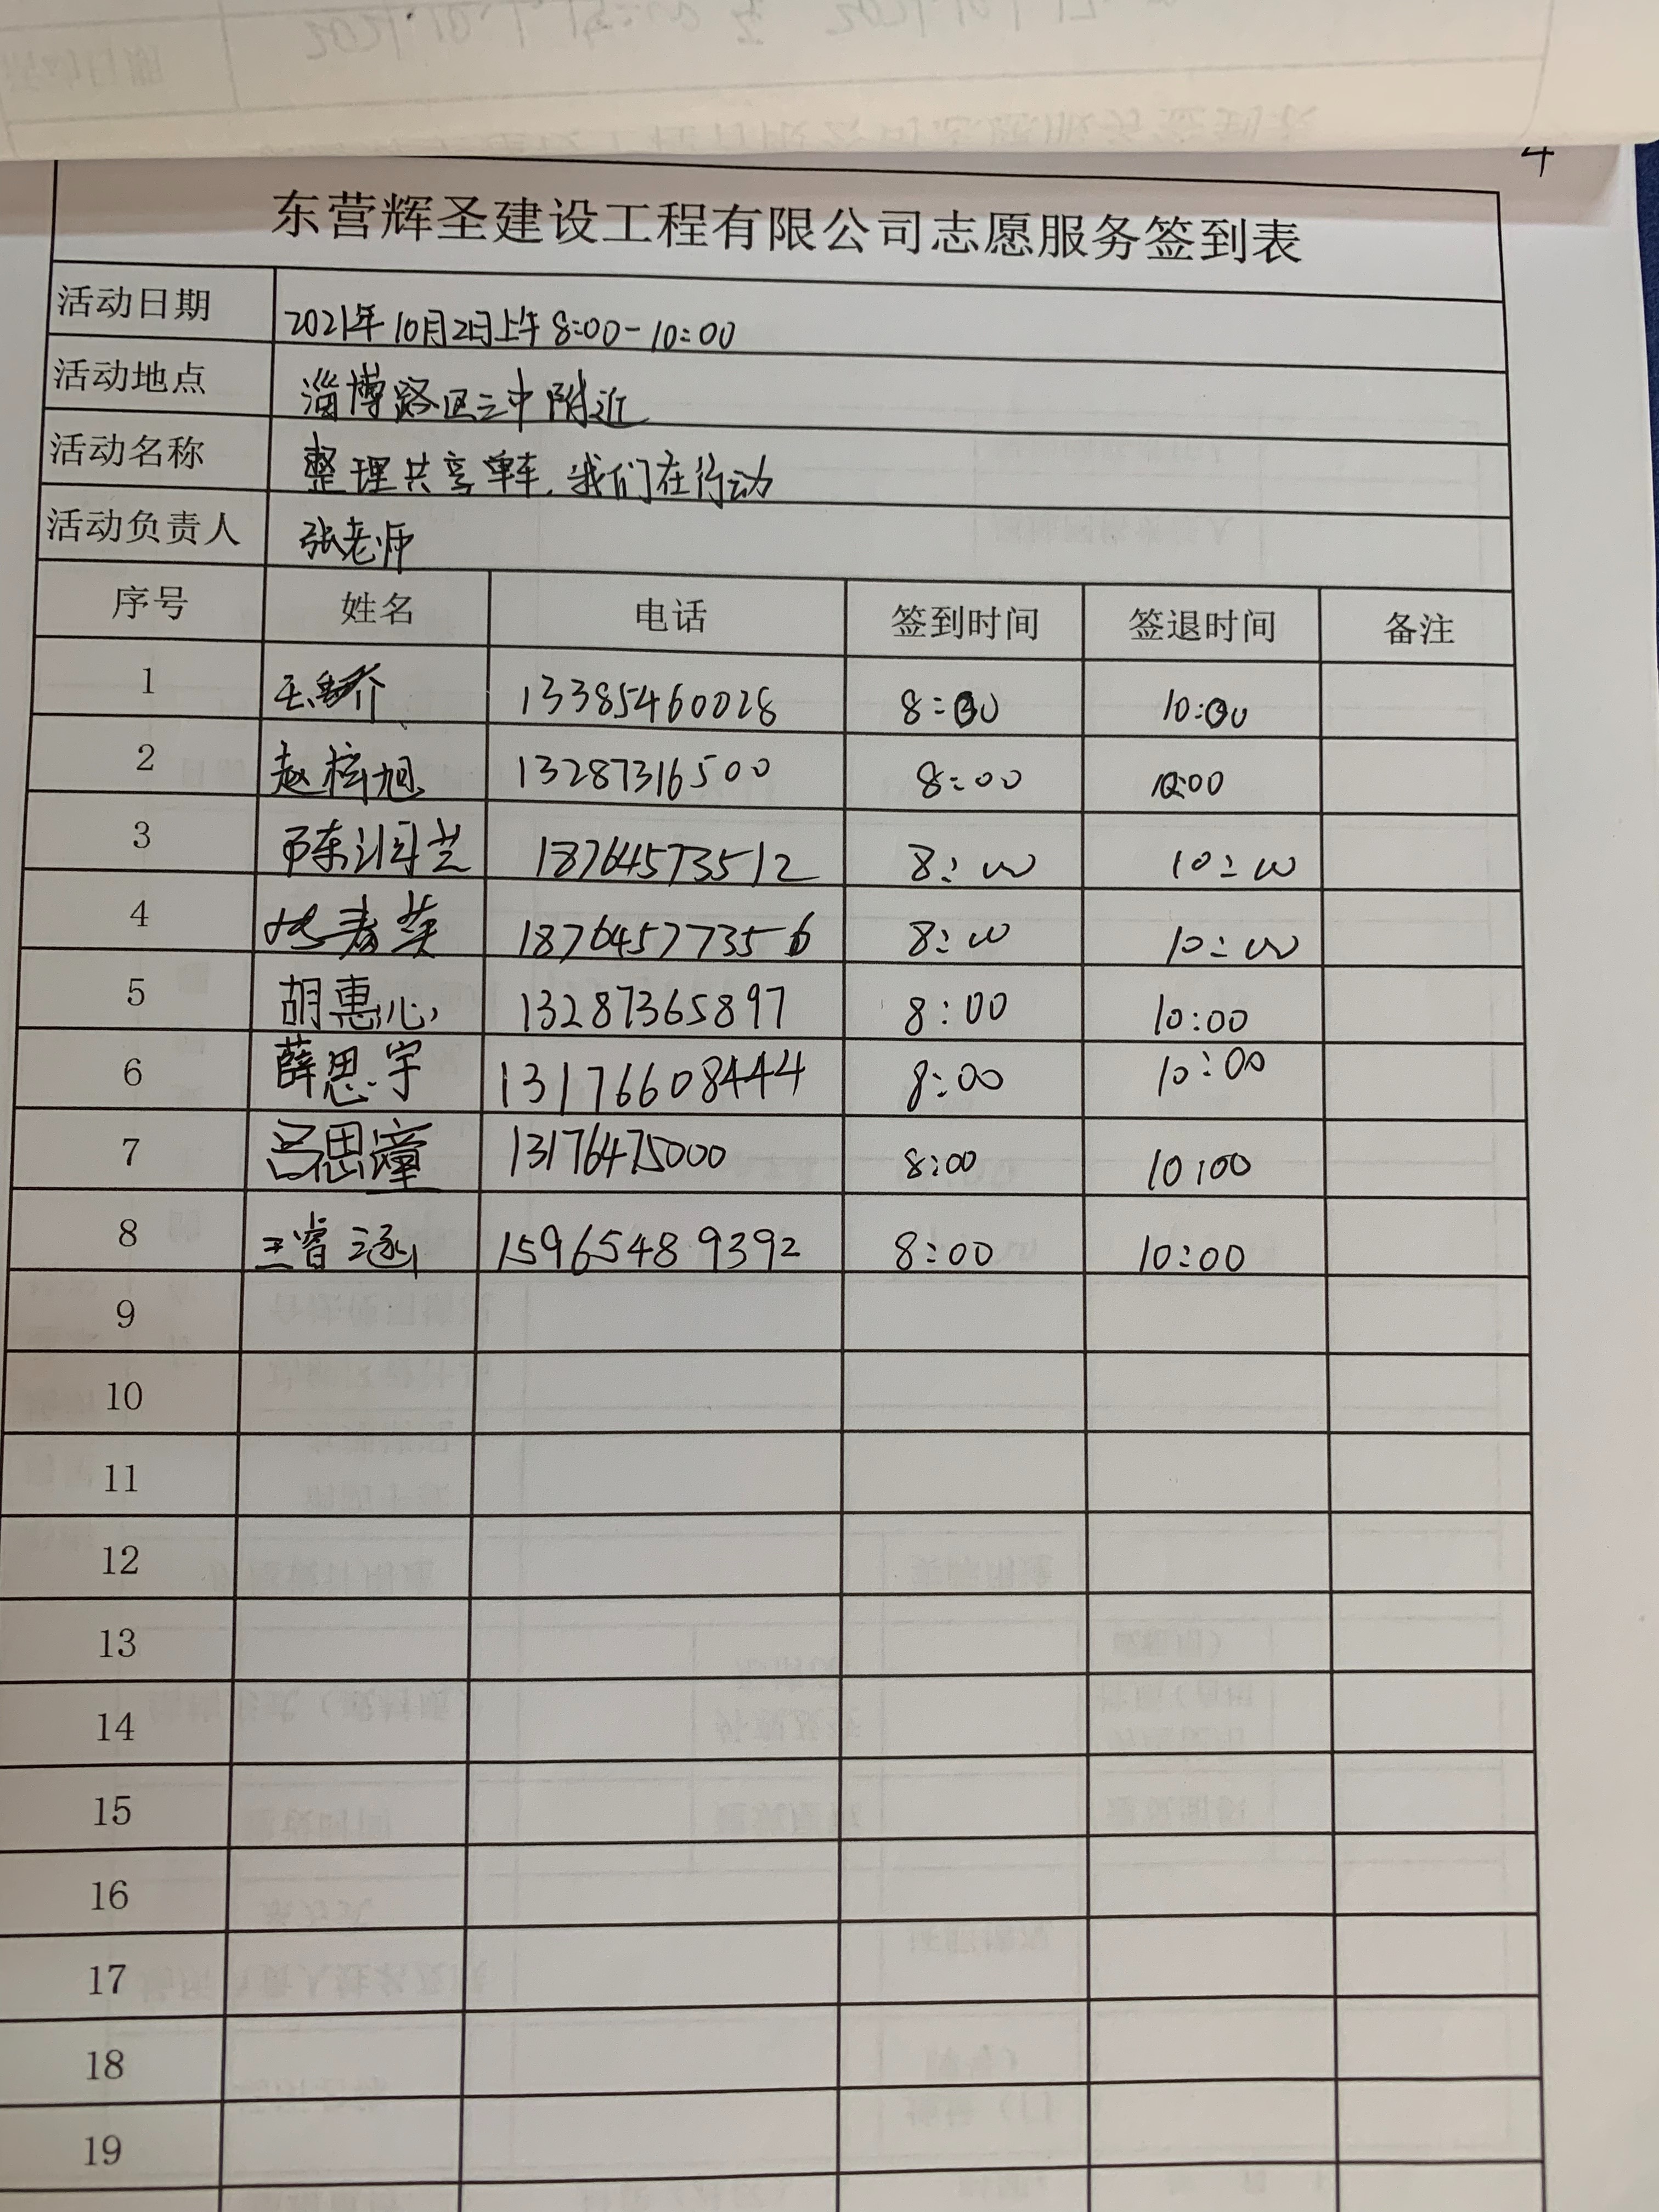 4
东营辉圣建设工程有限公司志愿服务签到表
活动日期 2021年10月2日上午8:00-10:00
活动地点 淄博路区三中附近
活动名称 整理共享单车,我们在行动
活动负责人 张老师
序号 姓名 电话 签到时间 签退时间 备注
1 13385460028 8:00 10:00
2 赵梓旭 13287316500 8:00 10:00
3 陈润芝 18764573512 8:00 10:00
4 18764577356 8:00 10:00
5 胡惠心 13287365897 8:00 10:00
6 薛思宇 13176608444 8:00 10:00
7 吕思潼 13176475000 8:00 10:00
8 王睿涵 15965489392 8:00 10:00
9
10
11
12
13
14
15
16
17
18
19